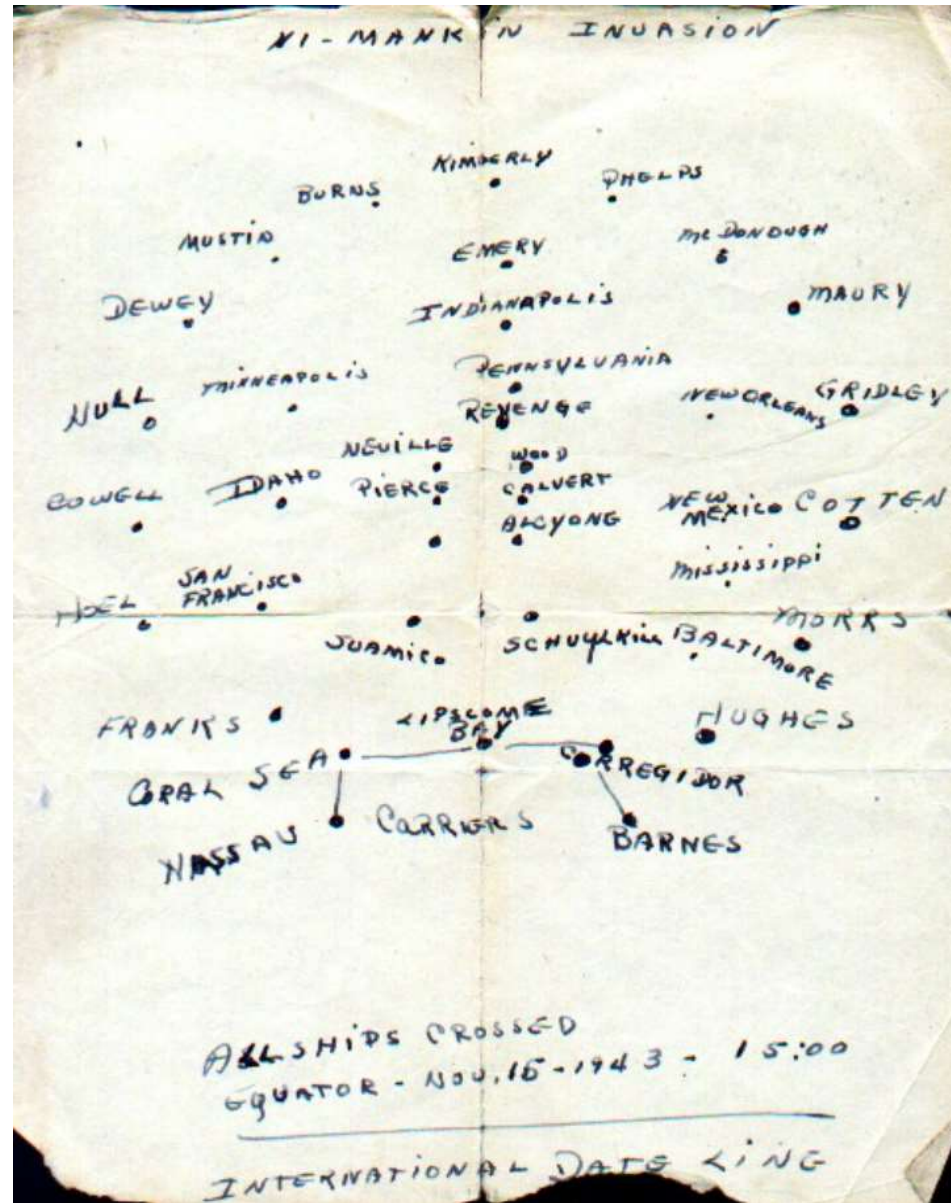 NI-MANKIN INVASION
KIMBERLY
BURNS PHELPS
MUSTIN EMERY McDONOUGH
DEWEY INDIANAPOLIS MAURY
PENNSYLVANIA
NULL MINNEAPOLIS REVENGE NEWORLEANS GRIDLEY
NEVILLE WOOD
COWELL IDAHO PIERCE CALVERT NEW MEXICO COTTEN
ALCYONG
MISSISSIPPI
HOEL SAN FRANCISCO MORRS
JUAMICO SCHUYLKILL BALTIMORE
FRANKS LIPSCOME BAY HUGHES
CORAL SEA CORREGIDOR
NASSAU CARRIERS BARNES
ALL SHIPS CROSSED
EQUATOR - NOV. 15 - 1943 - 15:00
INTERNATIONAL DATE LING